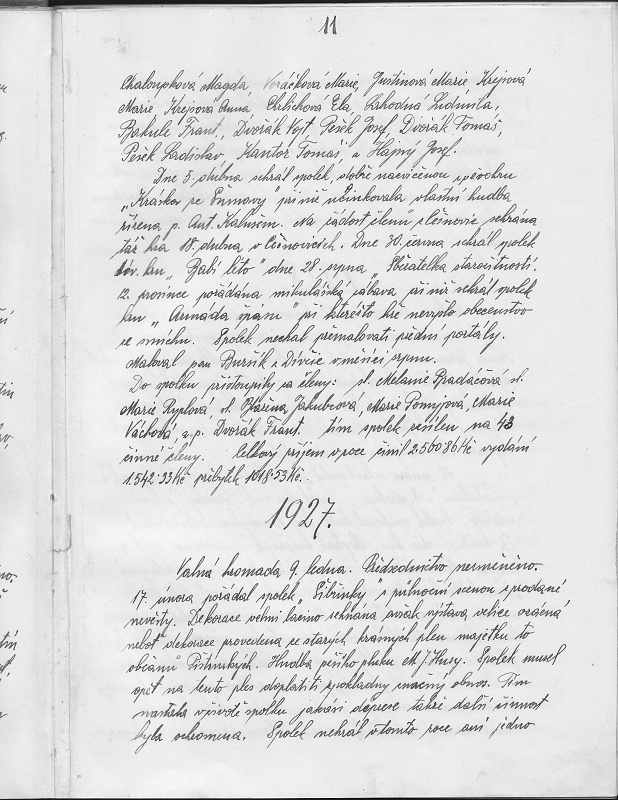 11
Chaloupková Magda, Voráčková Marie, Justinová Marie Krejsová
Marie, Krejsová Anna Chlichková Ela, Lahodna Ludmila,
Bakule Frant, Dvořák Vojt, Pešek Josef, Dvořák Tomáš,
Pešek Ladislav, Kantor Tomáš, a Hajný Josef.
Dne 5. dubna sehrál spolek, dobře nacvičenou zpěvohru
„Kráska ze Šumavy" při níž účinkovala vlastní hudba
řízena p. Ant. Kalušem. Na žádost členů z Čejnovic sehrána
táž hra 18. dubna v Čejnovicích. Dne 30. června sehrál spolek
div. hru „Babí léto" dne 28. srpna „Sběratelka starožitností.
12. prosince pořádána mikulášská zábava při níž sehrál spolek
hru „Armáda spásy" při kteréžto hře nevyšlo obecenstvo
ze smíchu. Spolek nechal přemalovati přední portály.
Maloval pan Buršík z Dívčic v měsíci srpnu.
Do spolku přistoupily za členy: sl. Melanie Spadáčová sl.
Marie Ryplová, sl. Božena Jakubcová, Marie Pomyjová, Marie
Vačková, a p. Dvořák Frant. tím spolek zesílen na 43
činné členy. Celkový příjem v roce činil 2.560·86 Kč vydání
1.542·33 Kč přibytek 1018·53 Kč.
1927.
Valná hromada 9. ledna. Předsednictvo nezměněno.
17. února pořádal spolek „Šibřinky" s půlnoční scenou z prodané
nevěsty. Dekorace velmi lacino sehnána avšak výstava velice vzácná
neboť dekorace provedena ze starých krásných plen majetku to
občanů Pištínských. Hudba pěšího pluku M. J. Husy. Spolek musel
opět na tento ples doplatiti z pokladny značný obnos. Tím
nastala v životě spolku jakási deprese takže další činnost
byla ochromena. Spolek nehrál v tomto roce ani jedno